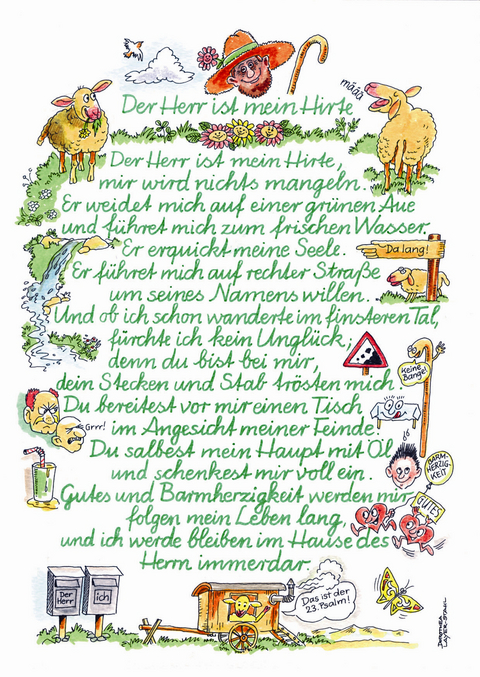 Der Herr ist mein Hirte
määä
Der Herr ist mein Hirte,
mir wird nichts mangeln.
Er weidet mich auf einer grünen Aue
und führet mich zum frischen Wasser.
Er erquickt meine Seele.
Da lang!
Er führet mich auf rechter Straße
um seines Namens willen.
Und ob ich schon wanderte im finsteren Tal,
fürchte ich kein Unglück;
denn du bist bei mir,
Keine Bange!
dein Stecken und Stab trösten mich.
Du bereitest vor mir einen Tisch
im Angesicht meiner Feinde.
Grrr!
Du salbest mein Haupt mit Öl
und schenkest mir voll ein.
BARM-
HERZIG-
KEIT
Gutes und Barmherzigkeit werden mir
GUTES
folgen mein Leben lang,
und ich werde bleiben im Hause des
Herrn immerdar.
Der
Herr
ich
Das ist der
23. Psalm!
DOROTHEA
LAYER-STAHL